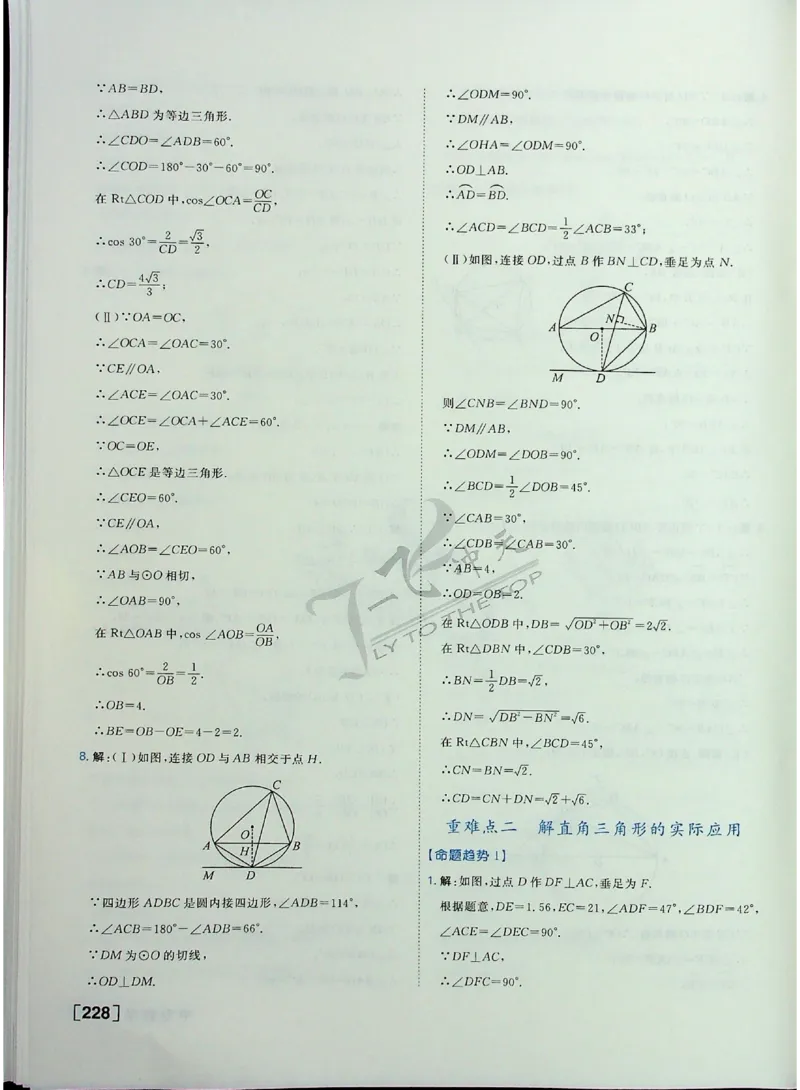 ∵AB=BD,
∴△ABD 为等边三角形.
∴∠CDO=∠ADB=60°.
∴∠COD=180°-30°-60°=90°.
在 Rt△COD 中,cos∠OCA=OC/CD,
∴cos 30°=2/CD=√3/2,
∴CD=4√3/3;
(Ⅱ)∵OA=OC,
∴∠OCA=∠OAC=30°.
∵CE∥OA,
∴∠ACE=∠OAC=30°.
∴∠OCE=∠OCA+∠ACE=60°.
∵OC=OE,
∴△OCE 是等边三角形.
∴∠CEO=60°.
∵CE∥OA,
∴∠AOB=∠CEO=60°,
∵AB 与⊙O 相切,
∴∠OAB=90°,
在 Rt△OAB 中,cos ∠AOB=OA/OB,
∴cos 60°=2/OB=1/2.
∴OB=4.
∴BE=OB-OE=4-2=2.
8.解:(Ⅰ)如图,连接 OD 与 AB 相交于点 H.
C
O
A H B
M D
∵四边形 ADBC 是圆内接四边形,∠ADB=114°,
∴∠ACB=180°-∠ADB=66°.
∵DM 为⊙O 的切线,
∴OD⊥DM.
[228]
∴∠ODM=90°.
∵DM∥AB,
∴∠OHA=∠ODM=90°.
∴OD⊥AB.
∴A͡D=B͡D.
∴∠ACD=∠BCD=1/2∠ACB=33°;
(Ⅱ)如图,连接 OD,过点 B 作 BN⊥CD,垂足为点 N.
C
N
A O B
M D
则∠CNB=∠BND=90°.
∵DM∥AB,
∴∠ODM=∠DOB=90°.
∴∠BCD=1/2∠DOB=45°.
∵∠CAB=30°,
∴∠CDB=∠CAB=30°.
∵AB=4,
∴OD=OB=2.
在 Rt△ODB 中,DB=√(OD²+OB²)=2√2.
在 Rt△DBN 中,∠CDB=30°,
∴BN=1/2DB=√2,
∴DN=√(DB²-BN²)=√6.
在 Rt△CBN 中,∠BCD=45°,
∴CN=BN=√2.
∴CD=CN+DN=√2+√6.
重难点二 解直角三角形的实际应用
【命题趋势1】
1.解:如图,过点 D 作 DF⊥AC,垂足为 F.
根据题意,DE=1.56,EC=21,∠ADF=47°,∠BDF=42°,
∠ACE=∠DEC=90°.
∵DF⊥AC,
∴∠DFC=90°.
一飞冲天
FLY TO THE TOP